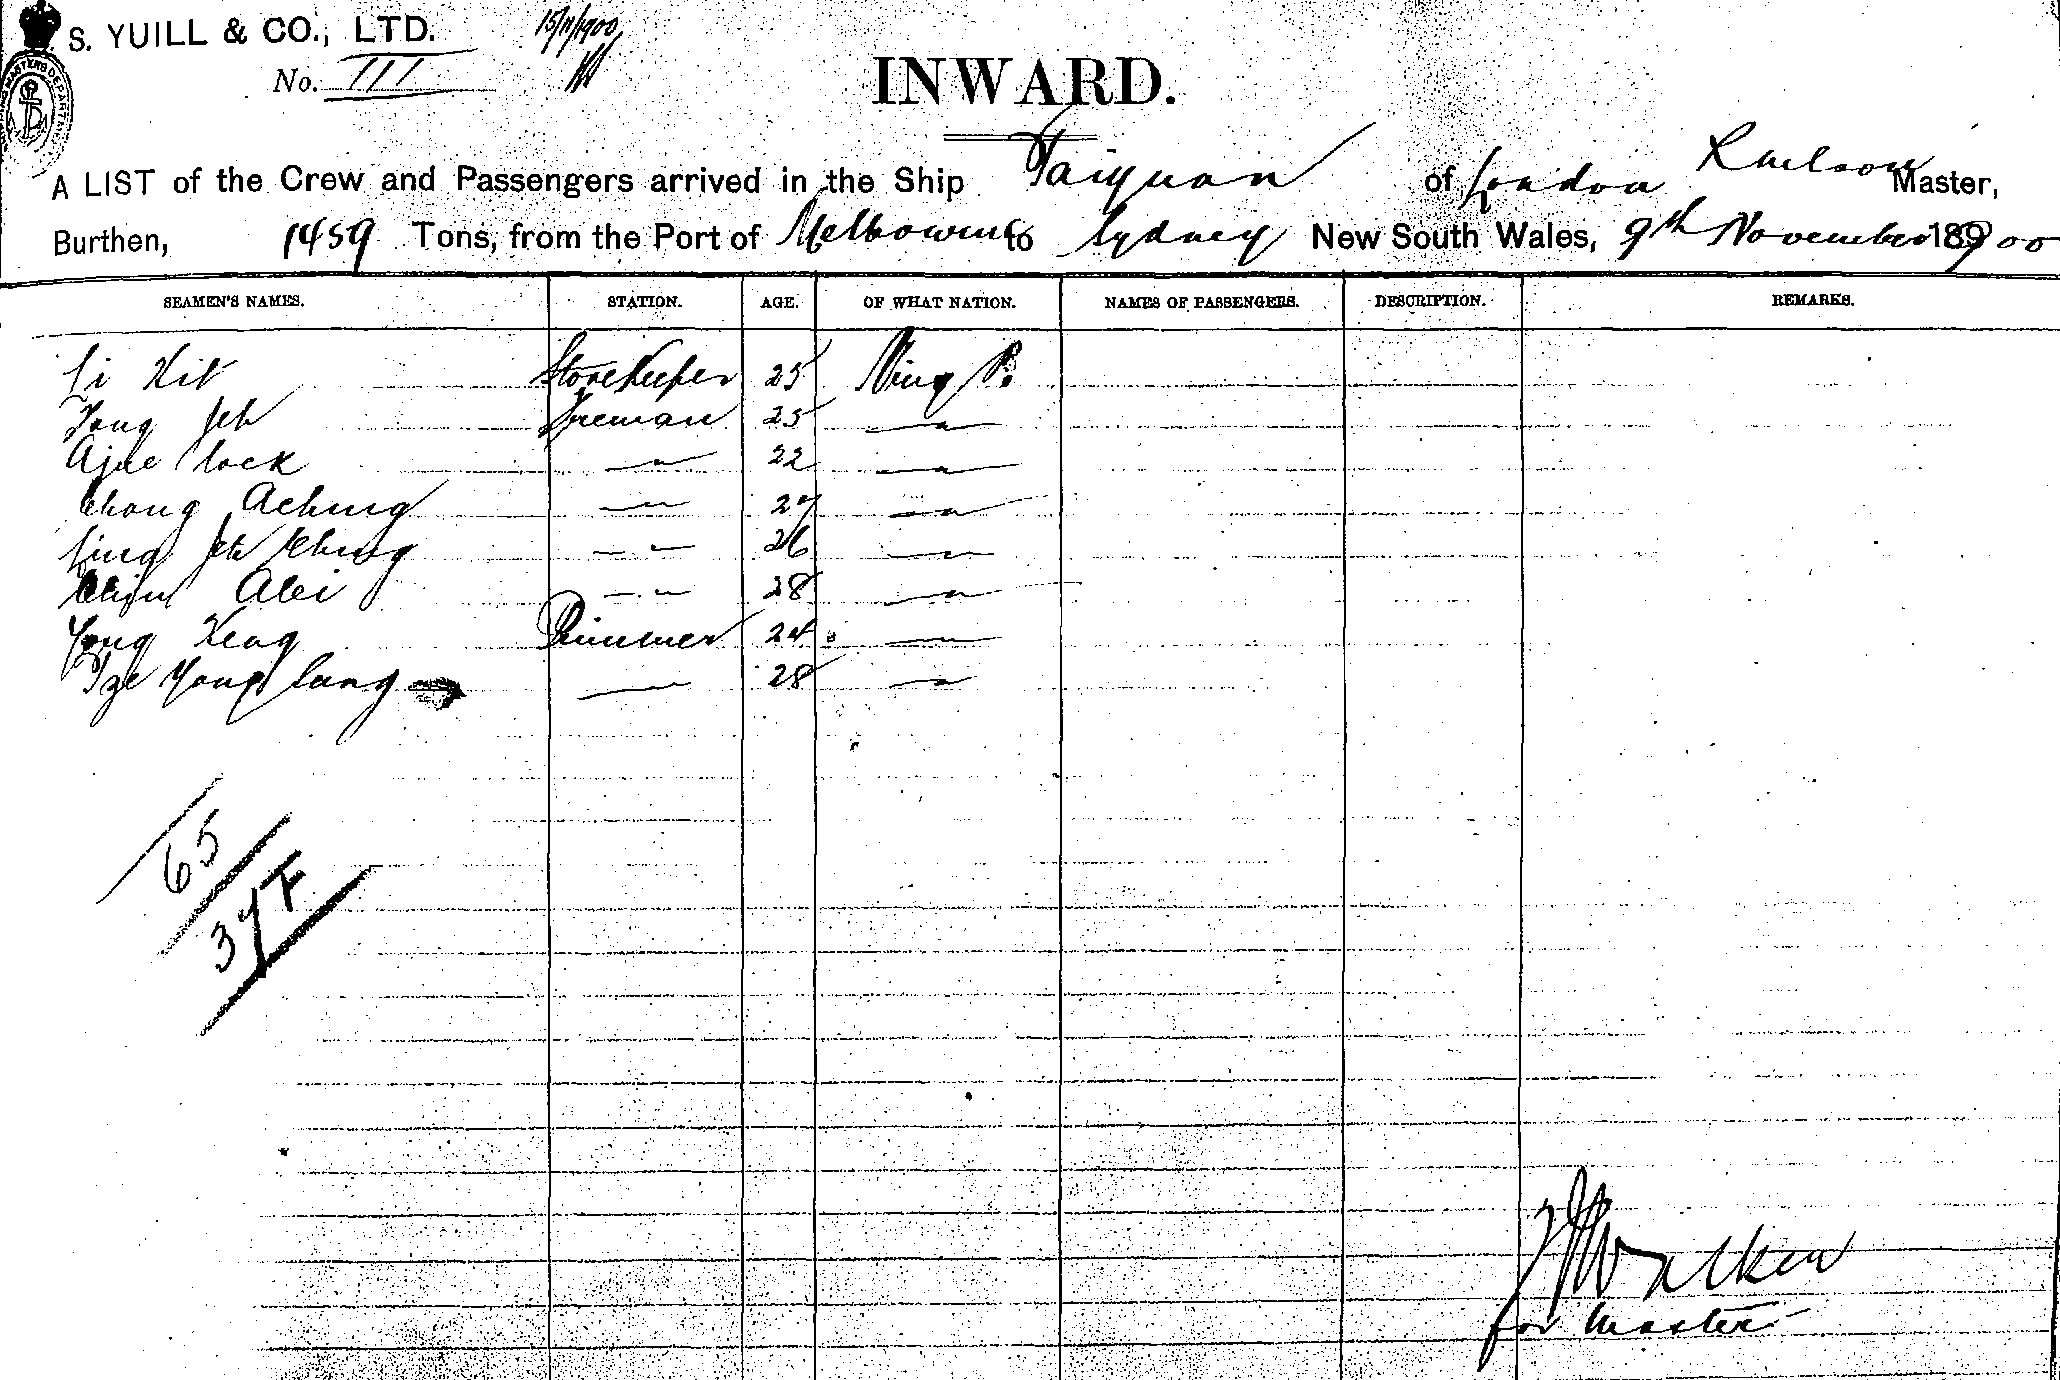 S. YUILL & CO., LTD.
15/11/1900
No. 111
INWARD.
A LIST of the Crew and Passengers arrived in the Ship Taiyuan of London Master,
Burthen, 1459 Tons, from the Port of Melbourne to Sydney New South Wales, 9th November 1900
SEAMEN'S NAMES. STATION. AGE. OF WHAT NATION. NAMES OF PASSENGERS. DESCRIPTION. REMARKS.
Li Kit Storekeeper 25 Ning Po
Yong Jeh Fireman 25 — " —
Ajae lock — " — 22 — " —
Chong Aching — " — 27 — " —
Ling Jeh Ching — " — 26 — " —
Alei — " — 28 — " —
Yong Keng Trimmer 24 — " —
Tze Yong lang — 28 — " —
65
37 F
Walker
for Master